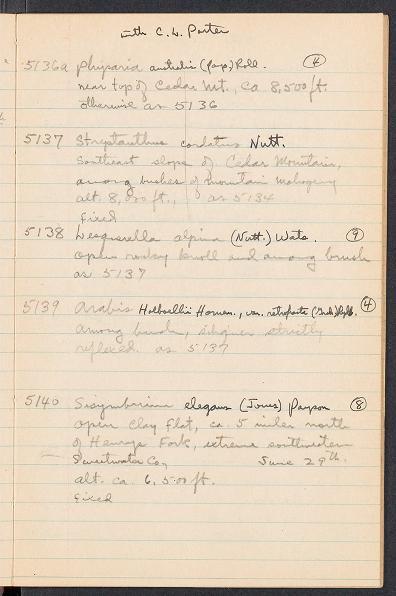 with C. L. Porter
5136a Physaria australis (Pays.) Roll. (4)
near top of Cedar Mt., ca 8,500 ft.
otherwise as 5136
5137 Streptanthus cordatus Nutt.
Southeast slope of Cedar Mountain,
among bushes of mountain mahogany
alt. 8,000 ft., as 5134
fixed
5138 Lesquerella alpina (Nutt.) Wats. (9)
open rocky knoll and among brush
as 5137
5139 Arabis Holboellii Hornem., var. retrofracta (Grah.) Rydb. (4)
among brush, siliques strictly
reflexed. as 5137
5140 Sisymbrium elegans (Jones) Payson (8)
open clay flat, ca. 5 miles north
of Henrys Fork, extreme southwestern
Sweetwater Co, June 29th.
alt. ca. 6,500 ft.
fixed